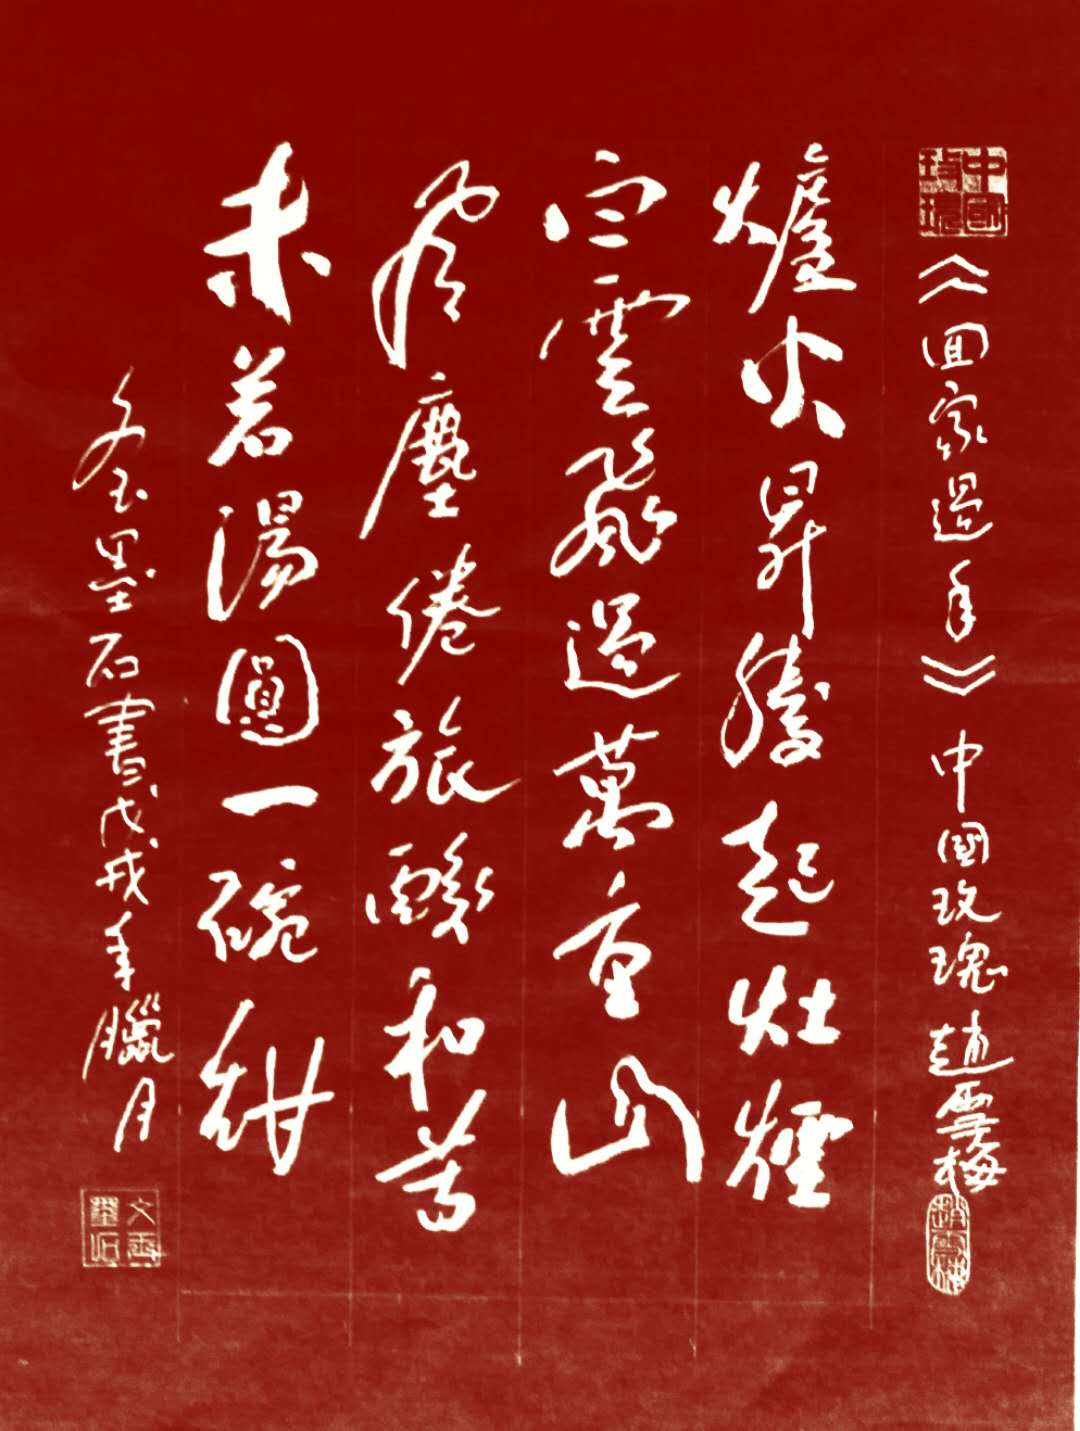 中國玫瑰
《回家過年》中國玫瑰 趙雲梅
趙雲梅
爐火昇騰起灶煙
白雲飛過萬重山
塵倦旅酸和苦
未若湯圓一碗甜
文玉墨石書戊戌年臘月
文玉墨石